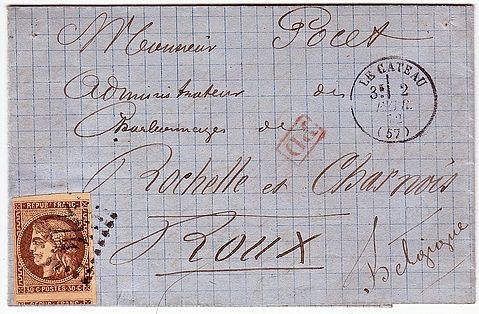 Monsieur Pocet
Administrateur des
Charbonnages de
Rochelle et Charnois
Roux
Belgique
LE CATEAU
3E 2
(57)
P.D.
REPUB. FRANC.
30·C·POSTES·30·C·
REPUB. FRANC.